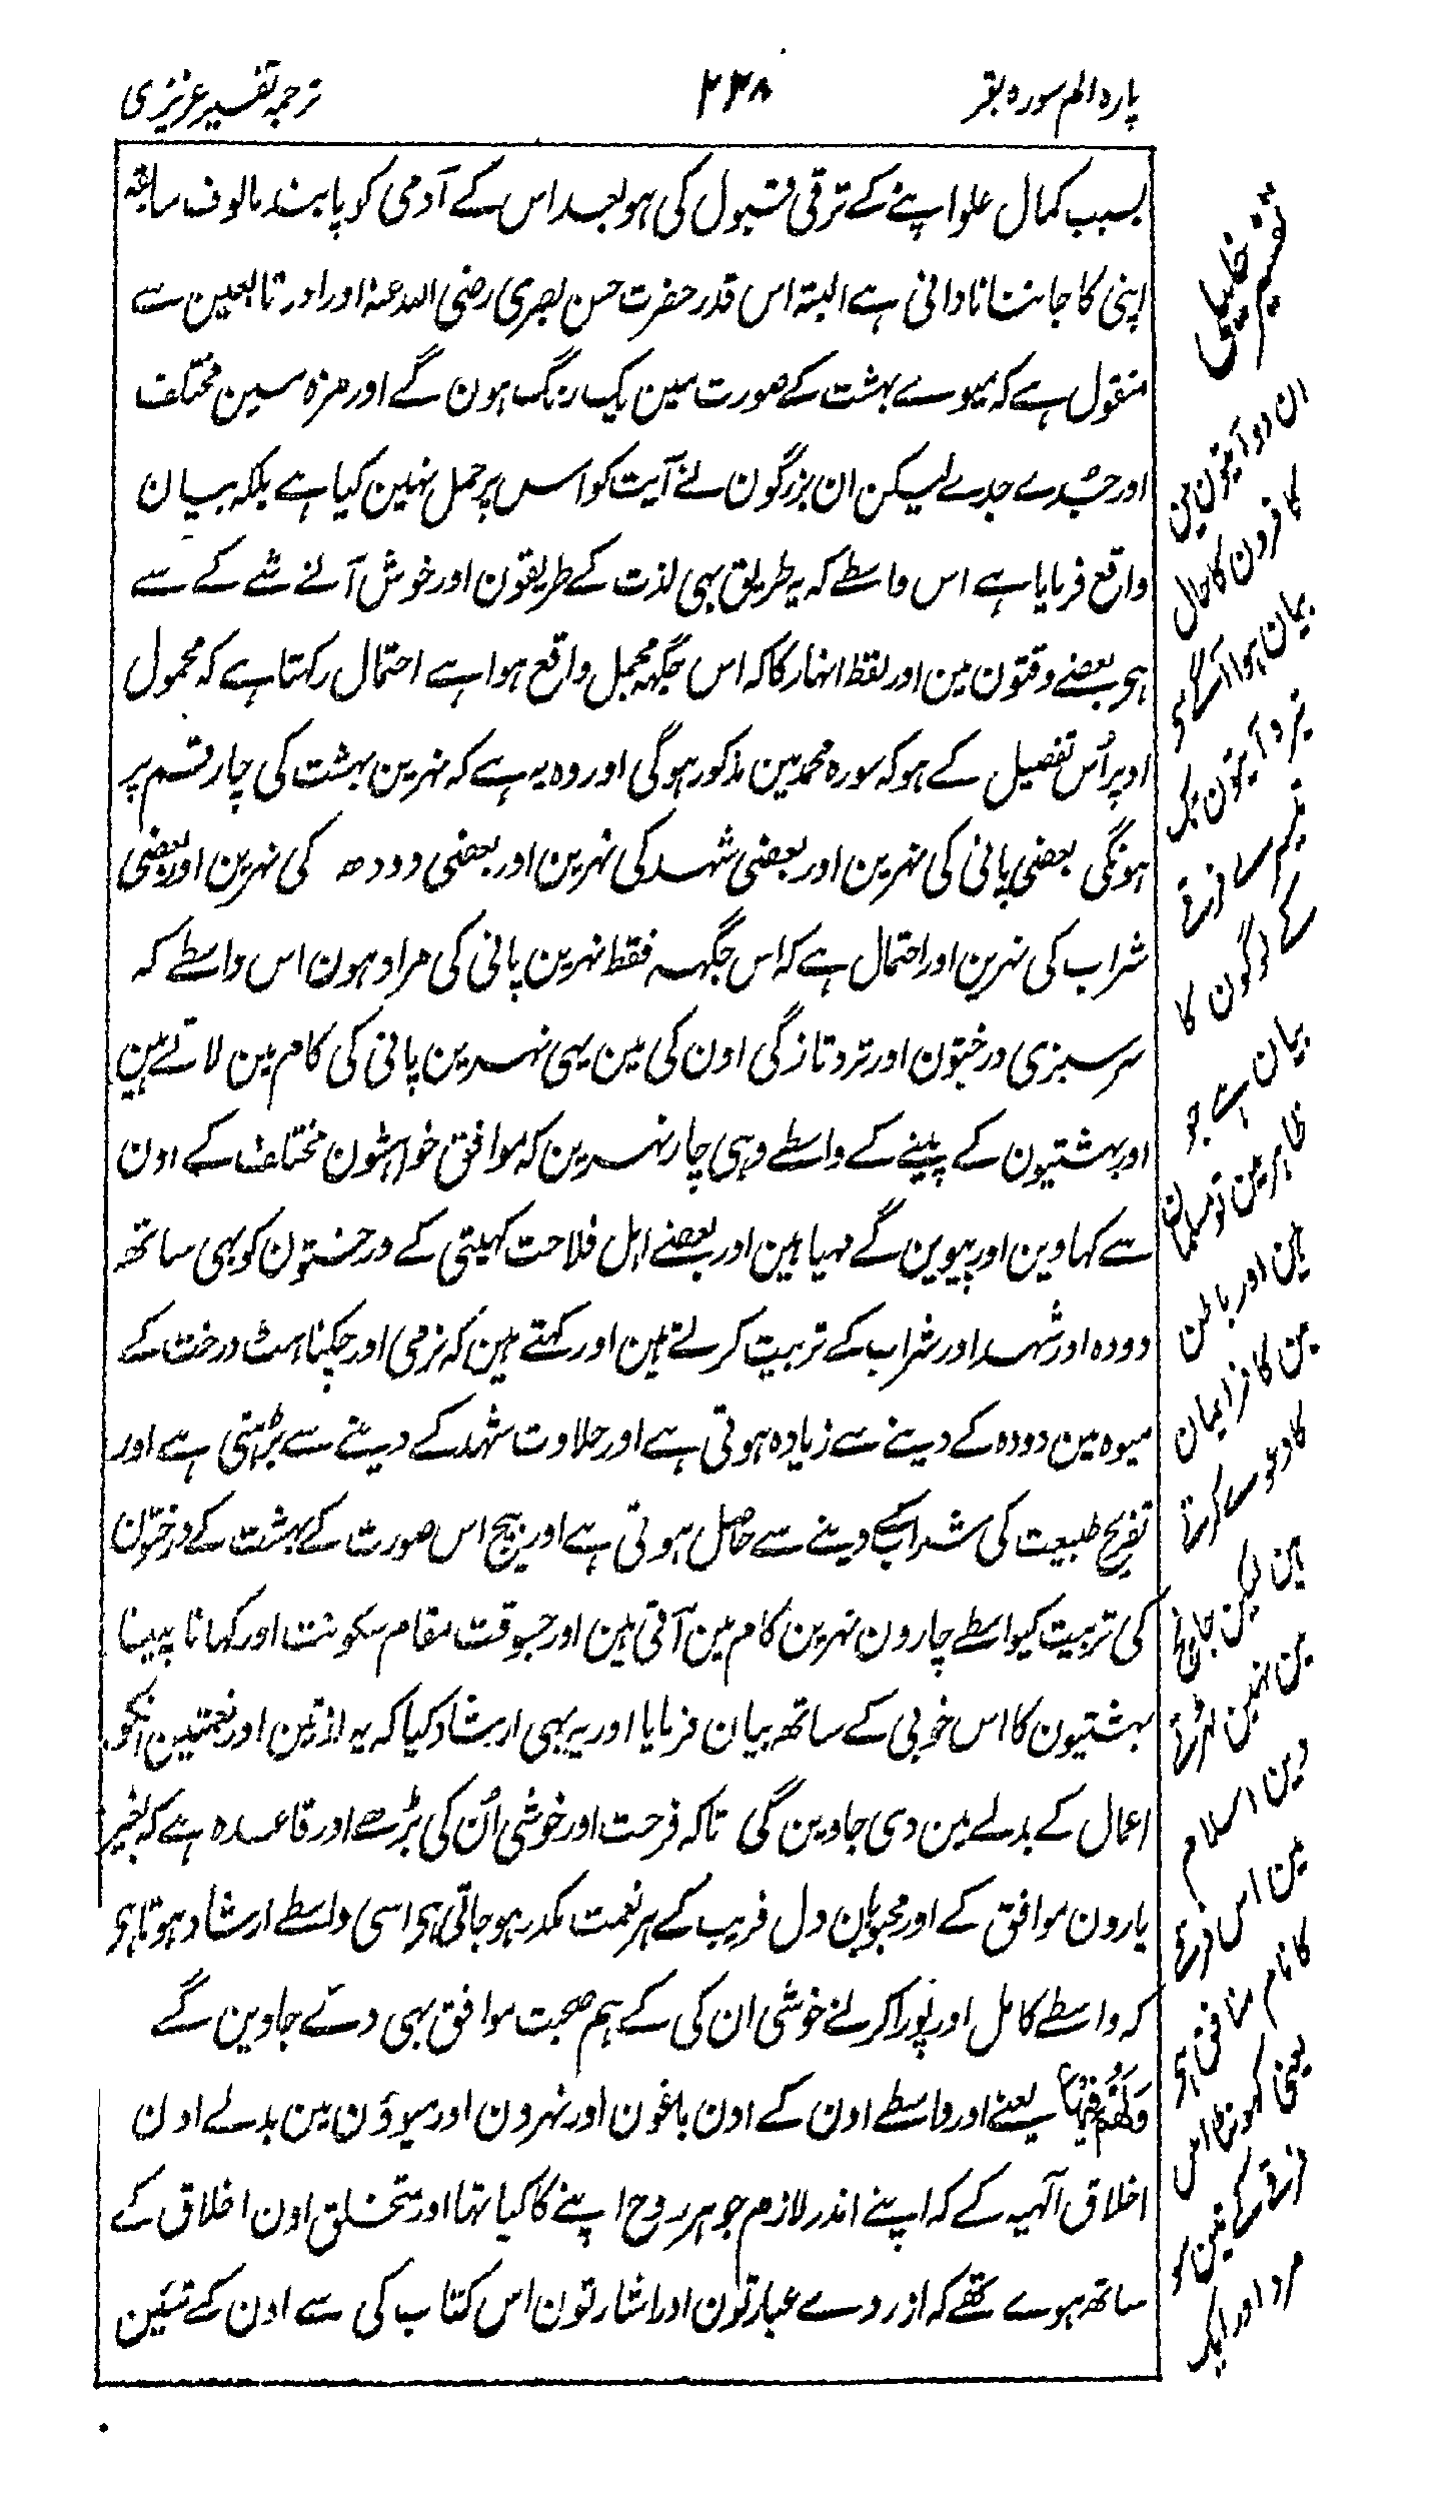 پارہ الم سورہ بقر
۲۳۸
ترجمہ تفسیر عزیزی
بسبب کمال علو اپنے کے ترقی قبول کی ہو بعد اس کے آدمی کو پابند مالوف سابقہ
اپنی کا جاننا نادانی ہے البتہ اس قدر حضرت حسن بصری رضی اللہ عنہ اور اور تابعین سے
منقول ہے کہ میوے بہشت کے صورت مین یک رنگ ہون گے اور مزہ مین مختلف
اور جُدے جدے لیکن ان بزرگون نے آیت کو اس پر حمل نہین کیا ہے بلکہ بیان
واقع فرمایا ہے اس واسطے کہ یہ طریق بہی لذت کے طریقون اور خوش آنے شے کے سے
ہی بعضے وقتون مین اور لفظ انہار کا کہ اس جگہہ مجمل واقع ہوا ہے احتمال رکہتا ہے کہ محمول
اوپر اُس تفصیل کے ہو کہ سورہ محمد مین مذکور ہوگی اور وہ یہ ہے کہ نہرین بہشت کی چار قسم پر
ہونگی بعضی پانی کی نہرین اور بعضی شہد کی نہرین اور بعضی دودھ کی نہرین اور بعضی
شراب کی نہرین اور احتمال ہے کہ اس جگہہ فقط نہرین پانی کی مراد ہون اس واسطے کہ
سرسبزی درختون اور تروتازگی اون کی مین یہی نہرین پانی کی کام مین لاتے ہین
اور بہشتیون کے پینے کے واسطے وہی چار نہرین کہ موافق خواہشون مختلف کے اون
سے کہاوین اور پیوین گے مہیا ہین اور بعضے اہل فلاحت کہیتی کے درختون کو بہی ساتھ
دودہ اور شہد اور شراب کے تربیت کرتے ہین اور کہتے ہین کہ نرمی اور چکناہٹ درخت کے
میوہ مین دودہ کے دینے سے زیادہ ہوتی ہے اور حلاوت شہد کے دینے سے بڑہتی ہے اور
تفریح طبیعت کی شراب کے دینے سے حاصل ہوتی ہے اور بیچ اس صورت کے بہشت کے درختون
کی تربیت کیواسطے چارون نہرین کام مین آتی ہین اور جسوقت مقام سکونت اور کہانا پینا
بہشتیون کا اس خوبی کے ساتھ بیان فرمایا اور یہ بہی ارشاد کیا کہ یہ لذتین اور نعمتین انکو
اعمال کے بدلے مین دی جاوین گی تاکہ فرحت اور خوشی اُن کی بڑہے اور قاعدہ ہے کہ بغیر
یارون موافق کے اور محبوبان دل فریب کے ہر نعمت مکدر ہو جاتی ہی اسی واسطے ارشاد ہوتا ہی
کہ واسطے کامل اور پورا کرنے خوشی ان کی کے ہم صحبت موافق بہی دئے جاوین گے
وَلَهُمْ فِيهَا یعنے اور واسطے اون کے اون باغون اور نہرون اور میوؤن مین بدلے اون
اخلاق الٰہیہ کے کہ اپنے اندر لازم جوہر روح اپنے کا کیا تہا اور متخلق اون اخلاق کے
ساتھ ہوے تھے کہ از روے عبارتون اور اشارتون اس کتاب کی سے اون کے تئین
تفسیر خلیلی
ان دو آیتون مین
کافرون کا حال
بیان ہوا آگے کی
تیرہ آیتون مین
تیسرے فرقے
کے لوگون کا
بیان ہے جو
ظاہر مین تو مسلمان
ہین اور باطن
مین کافر ایمان
کا دعوے کرتے
ہین لیکن
مین نہین
دین اسلام
مین اس فرقے
کا نام منافق ہی
یعنی اس
فرقے کے تئین
مرد اور ایک